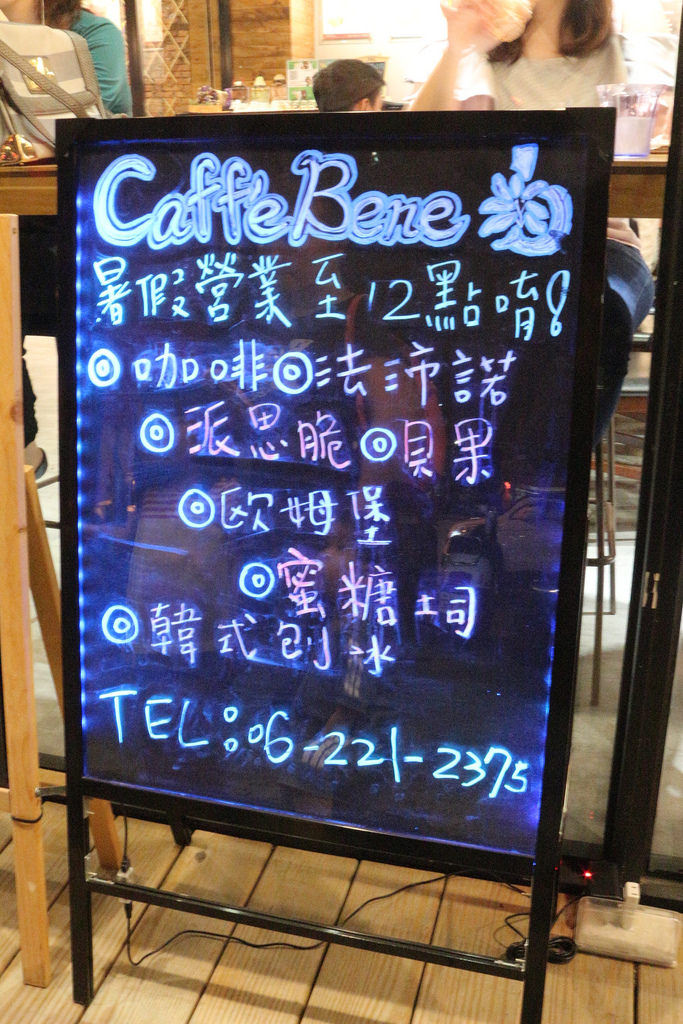 Caffe Bene
暑假營業至12點唷!
◎咖啡◎法沛諾
◎派思脆◎貝果
◎歐姆堡
◎蜜糖土司
◎韓式刨冰
TEL:06-221-2375